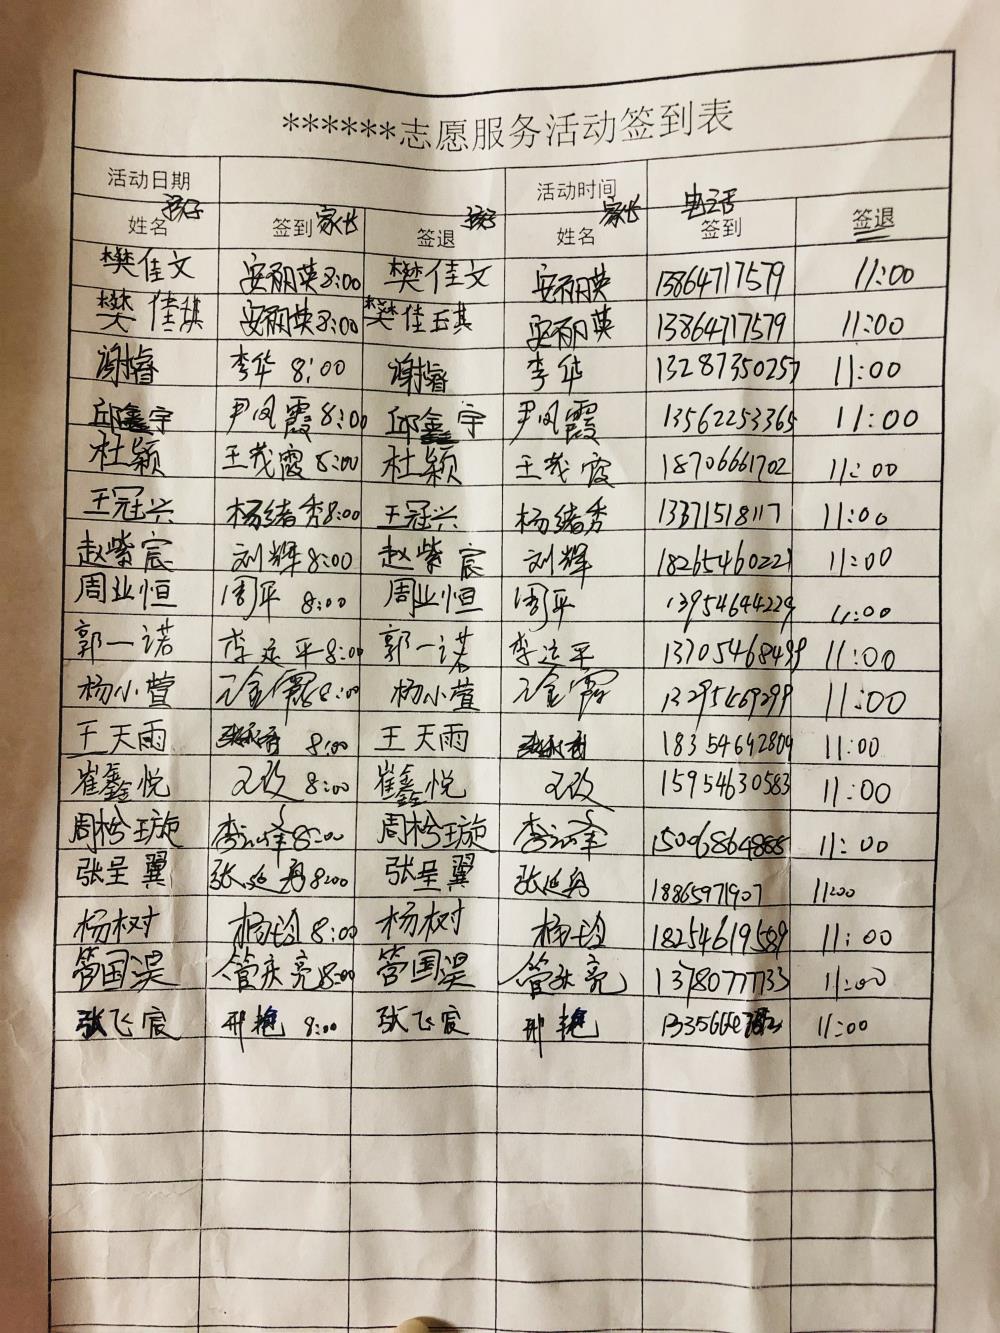 ******志愿服务活动签到表
活动日期 活动时间
姓名 孩子 签到 家长 签退 孩子 姓名 家长 签到 电话 签退
樊佳文 安丽英 8:00 樊佳文 安丽英 13864717579 11:00
樊佳琪 安丽英 8:00 樊佳琪 安丽英 13864717579 11:00
谢睿 李华 8:00 谢睿 李华 13287350257 11:00
邱鑫宇 尹凤霞 8:00 邱鑫宇 尹凤霞 13562253365 11:00
杜颖 王茂霞 8:00 杜颖 王茂霞 18706661702 11:00
王冠兴 杨绪秀 8:00 王冠兴 杨绪秀 13371518117 11:00
赵紫宸 刘辉 8:00 赵紫宸 刘辉 18265460221 11:00
周业恒 周平 8:00 周业恒 周平 13954644229 11:00
郭一诺 李运平 8:00 郭一诺 李运平 13705468499 11:00
杨小萱 8:00 杨小萱 13295469299 11:00
王天雨 8:00 王天雨 18354642809 11:00
崔鑫悦 8:00 崔鑫悦 15954630583 11:00
周松璇 8:00 周松璇 15006864888 11:00
张呈翼 张延勇 8:00 张呈翼 张延勇 18865971907 11:00
杨树 杨玲 8:00 杨树 杨玲 18254619589 11:00
管国淏 管庆亮 8:00 管国淏 管庆亮 13780777733 11:00
张飞宸 邢艳 8:00 张飞宸 邢艳 11:00